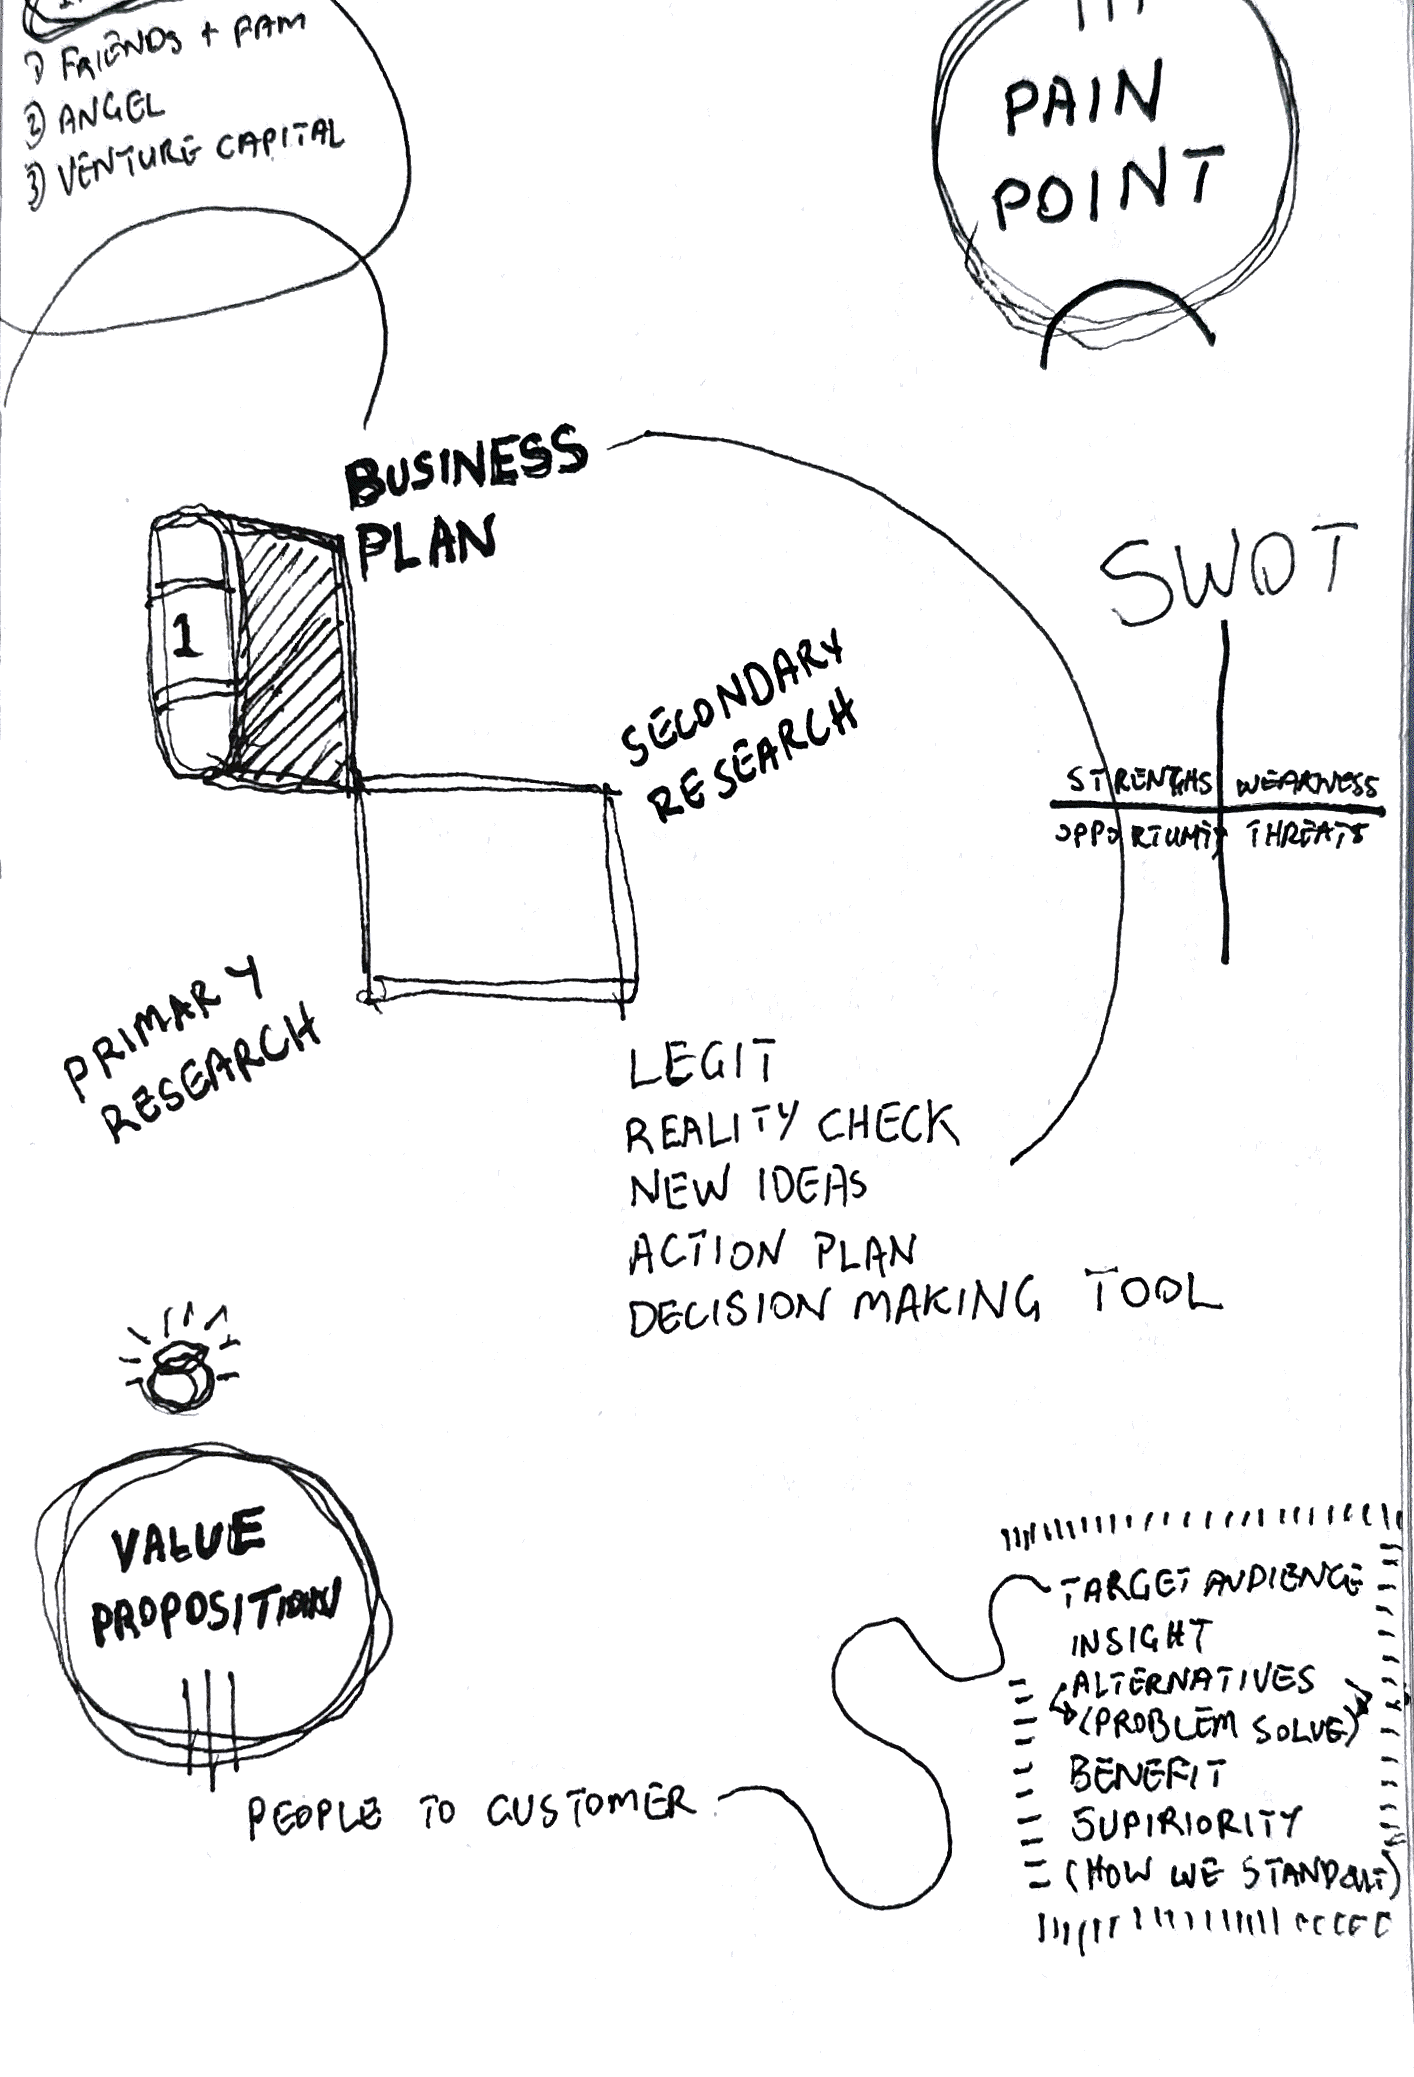 1) FRIENDS + FAM
2) ANGEL
3) VENTURE CAPITAL
PAIN
POINT
BUSINESS
PLAN
1
SWOT
STRENGHS WEAKNESS
OPPORTUMITY THREATS
SECONDARY
RESEARCH
PRIMARY
RESEARCH
LEGIT
REALITY CHECK
NEW IDEAS
ACTION PLAN
DECISION MAKING TOOL
VALUE
PROPOSITION
PEOPLE TO CUSTOMER
TARGET AUDIENCE
INSIGHT
ALTERNATIVES
(PROBLEM SOLVE)
BENEFIT
SUPIRIORITY
(HOW WE STANDOUT)